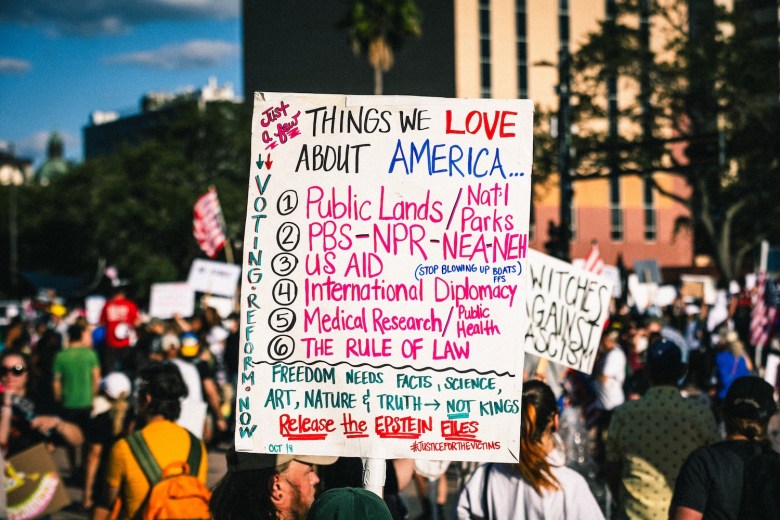 Just
a few
THINGS WE LOVE
ABOUT AMERICA...
VOTING·REFORM·NOW
1 Public Lands / Nat'l
Parks
2 PBS-NPR-NEA-NEH
3 US AID (STOP BLOWING UP BOATS)
FFS
4 International Diplomacy
5 Medical Research / Public
Health
6 THE RULE OF LAW
FREEDOM NEEDS FACTS, SCIENCE,
ART, NATURE & TRUTH → NOT KINGS
Release the EPSTEIN FILES
OCT 18 #JUSTICEFORTHEVICTIMS
WITCHES
AGAINST
FASCISM